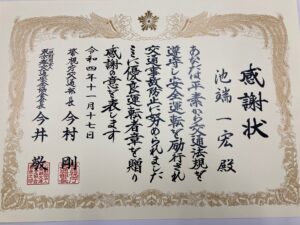 感謝状
池端一宏 殿
あなたは平素から交通法規を
遵守し安全運転を励行され
交通事故防止に努められました
ここに優良運転者章を贈り
感謝の意を表します
令和四年十一月十七日
警視庁交通部長 今村 剛
今井 敬